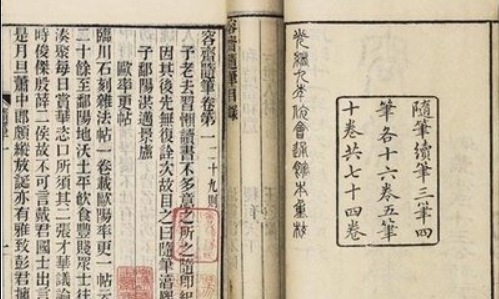 隨筆續筆三筆四
筆各十六卷五筆
十卷共七十四卷
光緒九年依會通館本重校
容齋隨筆目錄
容齋隨筆卷第一 二十九則
予老去習懶讀書不多意之所之隨即紀
因其後先無復詮次故目之曰隨筆淳熙
子鄱陽洪邁景盧
歐率更帖
臨川石刻雜法帖一卷載歐陽率更一帖云
二十餘至鄱陽地沃土平飲食豐賤眾士往
湊聚每日賞華恣口所須其二張才華議論
時俊傑殷薛二侯故不可言戴君國士出言
是月旦蕭中郎頗縱放誕亦有雅致彭君摛